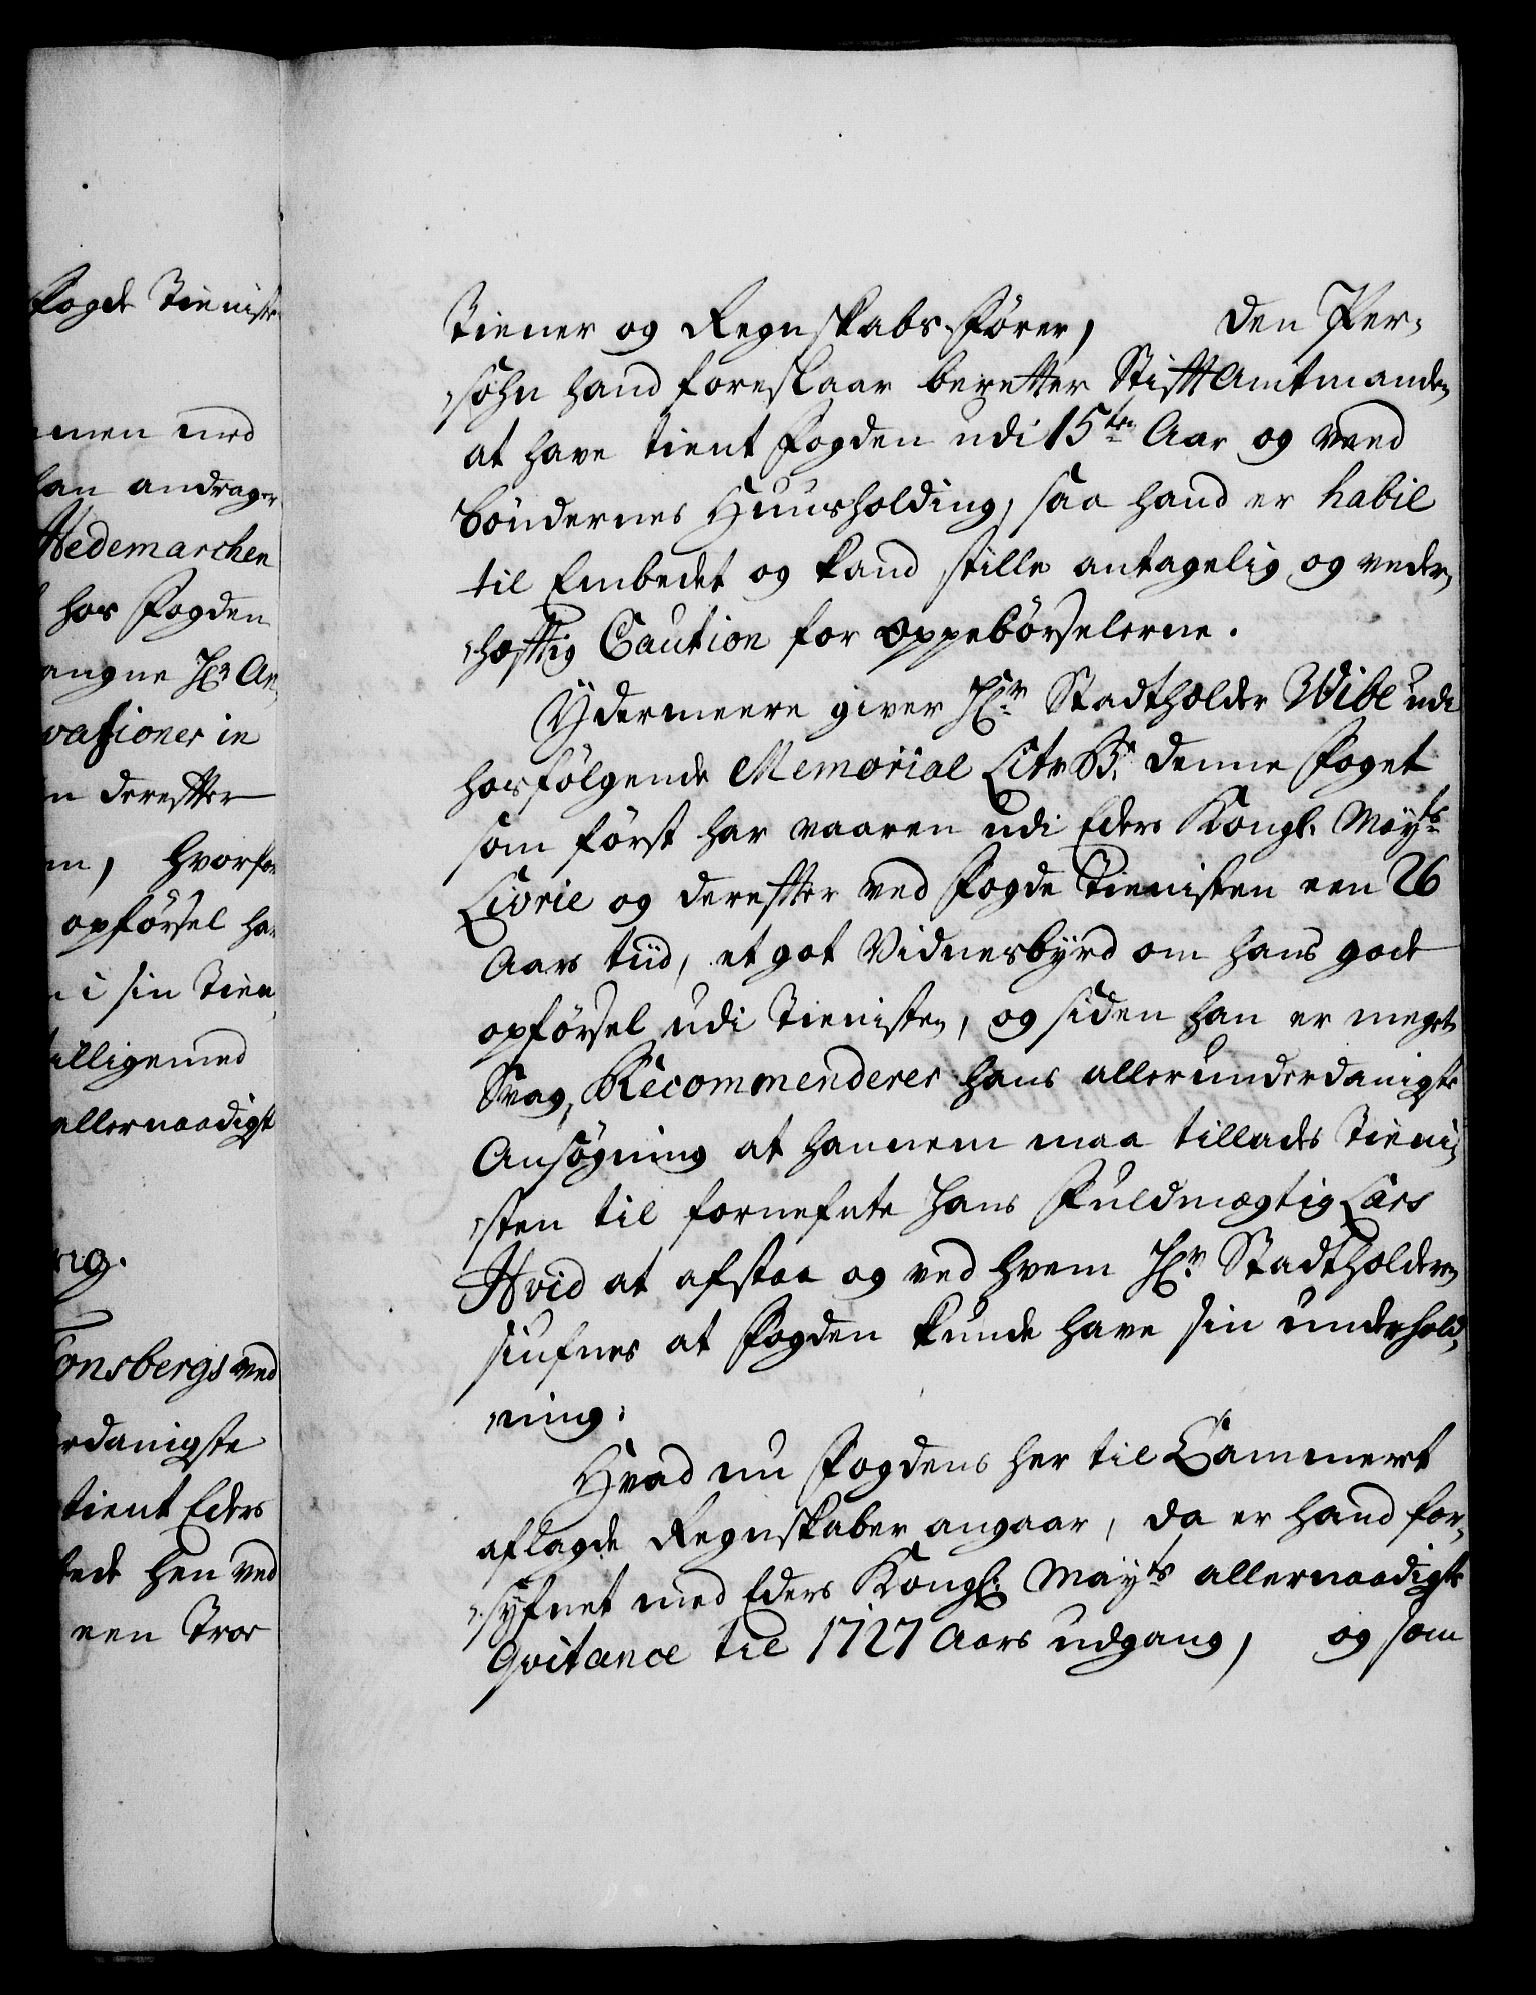 Fogde Tieniste
men med
han andrager
Hedemarchen
hos Fogden
angne Hr An
vationer in
n derefter
m, hvorfor
opförsel ha
i sin Tien
tilligemed
allernaadigst
rig.
Tonsbergs ved
rdanigste
tient Eders
tede hen ved
een Troe
Tiener og Regnskabs-Förer, den Per-
sohn hand foreslaar beretter Stifft Amtmanden
at have tient Fogden udi 15ten Aar og væred
Böndernes Huusholding, saa hand er habil
til Embedet og kand stille antagelig og veder-
hæftig Caution for Oppebörselerne.
Ydermeere giver Hr. Stadtholder Wibe udi
hosfölgende Memorial Litr B. denne Foget
som först har vaaren udi Eders Kongl. Mayts
Livrie og derefter ved Fogde Tienisten een 26
Aars tiid, et got Vidnesbyrd om hans gode
opförsel udi Tienisten, og siden han er meget
Svag, Recommenderer hans allerunderdanigste
Ansögning at hannem maa tillades Tieni-
sten til fornefnte hans Fuldmægtig Lars
Hvid at afstaa og ved hvem Hr. Stadtholderen
siufnes at Fogden kunde have sin underhold-
ning.
Hvad nu Fogdens her til Cammert
aflagde Regnskaber angaar, da er hand for-
syfnet med Eders Kongl: Mayts allernaadigste
Qvitance til 1727 Aars udgang, og som